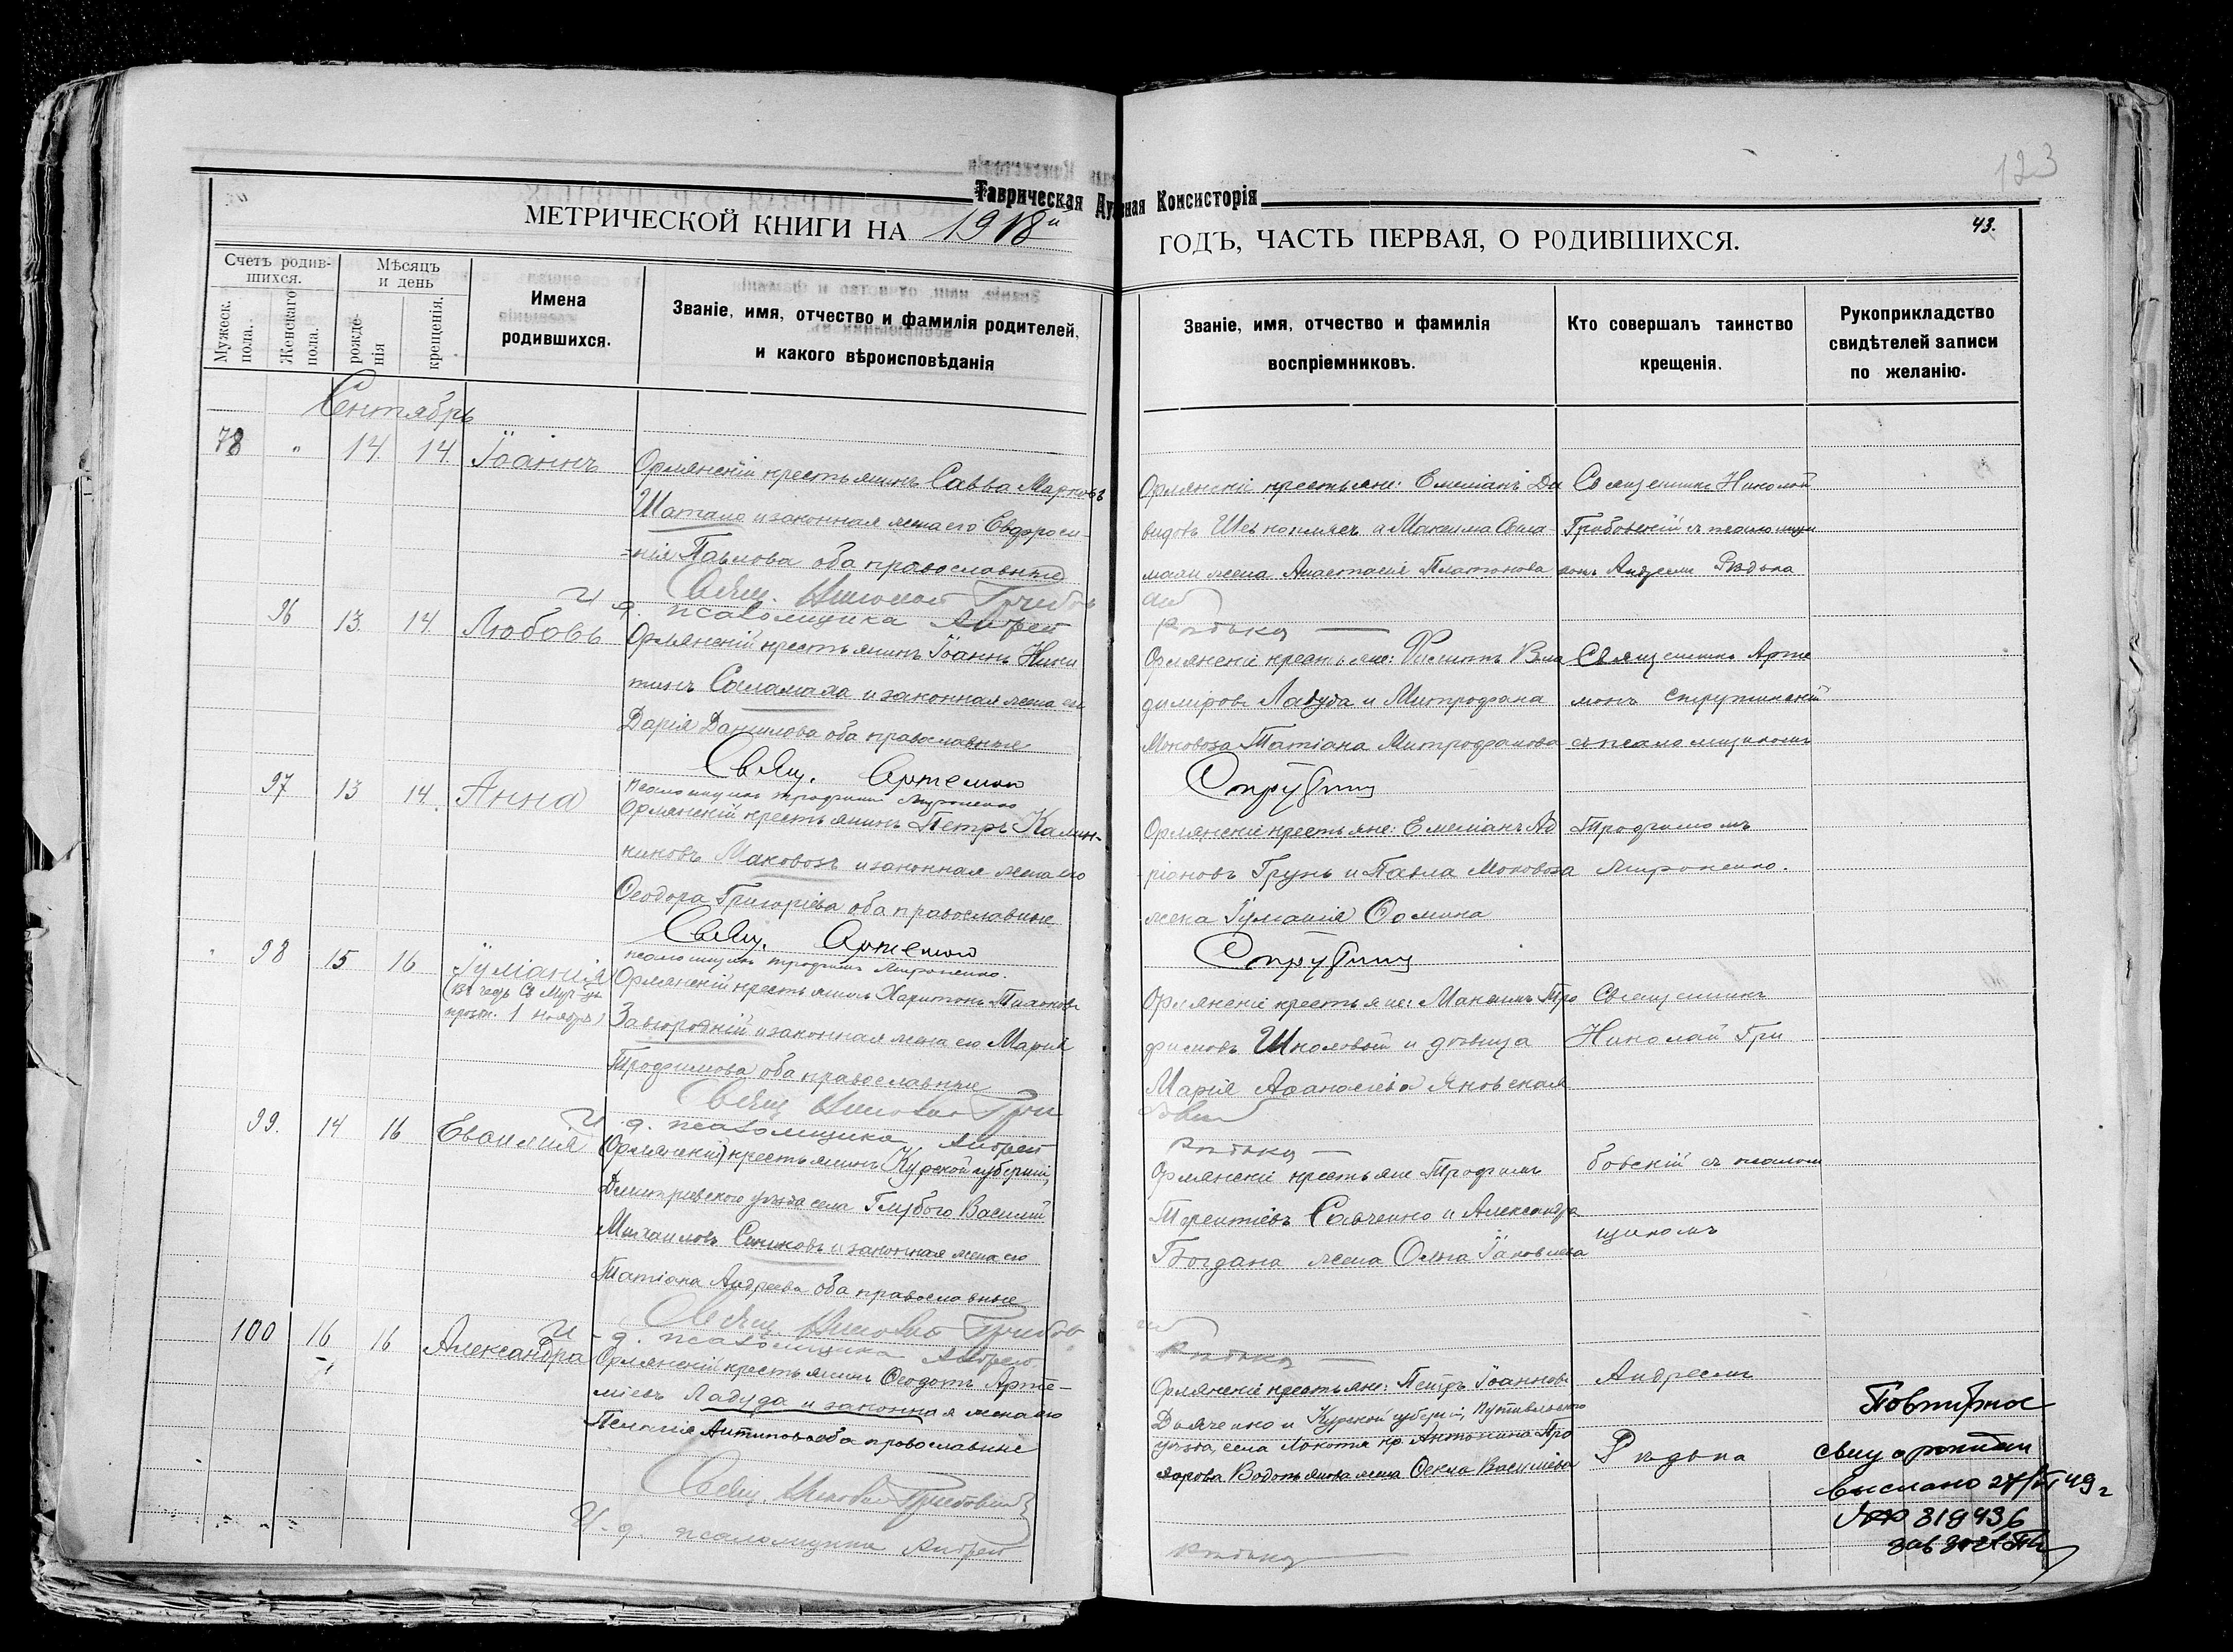 Таврическая Духовная Консисторія
123
МЕТРИЧЕСКОЙ КНИГИ НА 1918й
ГОДЪ, ЧАСТЬ ПЕРВАЯ, О РОДИВШИХСЯ.
43.
Счетъ родив-
шихся.
Мужеск. пола.
Женскаго пола.
Мѣсяцъ
и день
рожде-
нія
крещенія.
Имена
родившихся.
Званіе, имя, отчество и фамилія родителей,
и какого вѣроисповѣданія
Званіе, имя, отчество и фамилія
воспріемниковъ.
Кто совершалъ таинство
крещенія.
Рукоприкладство
свидѣтелей записи
по желанію.
Сентябрь
78 " 14. 14. Іоаннъ
Орлянскій крестьянинъ Савва Марковъ
Шатало и законная жена его Евфроси-
=нія Павлова оба православные
Свящ. Николай Грибов
И. д. псаломщика Андрей
Орлянскіе крестьяне: Емеліанъ Да
видовъ и Максима Сала
махи жена Анастасія Платонова
Рядька
Священникъ Николай
Грибовскій съ псаломщи
комъ Андреем Рядька
96 13. 14. Любовь
Орлянскій крестьянинъ Іоаннъ Ники
тинъ Саламаха и законная жена его
Дарія Данилова оба православные
Свящ. Артемон
псаломщикъ Трофимъ Мироненко
Орлянскіе крестьяне: Филиппъ Вла
диміровъ Ладуда и Митрофана
Моковоза Татіана Митрофанова
Священникъ Арте
монъ
съ псаломщикомъ
97 13 14. Анна
Орлянскій крестьянинъ Петръ Калин-
никовъ Маковозъ и законная жена его
Ѳеодора Григоріева оба православные
Свящ. Артемон
псаломщикъ Трофимъ Мироненко.
Орлянскіе крестьяне: Емеліанъ Ад
ріановъ Грунь и Павла Моковоза
жена Іуліанія Ѳомина
Трофимомъ
Мироненко.
98 15 16 Іуліанія
(въ честь Св Муч-цы
празн. 1 ноября)
Орлянскій крестьянинъ Харитонъ
Завгородній и законная жена его Марія
Трофимова оба православные
Свящ Николай Гри
И. д. псаломщика Андрей
Орлянскіе крестьяне: Максимъ Тро
фимовъ Школовый и дѣвица
Марія Аѳанасіева Яновская
Рядька
Священникъ
Николай Гри
99. 14 16 Евфимія
(Орлянскій) крестьянинъ Курской губерніи,
Дмитріевского уѣзда села Глубого Василій
Михаиловъ и законная жена его
Татіана Андреева оба православные
Свящ Николай Грибов
И. д. псаломщика Андрей
Орлянскіе крестьяне Трофимъ
Терентіевъ Савченко и Александра
Богдана жена Ольга Іаковлева
Рядька
бовскій съ псалом
щикомъ
100 16 16 Александра
Орлянскій крестьянинъ Ѳеодотъ Арте-
міевъ Ладуда и законная жена его
Пелагія Антипова оба православные
Свящ. Николай Грибовский
И. д. псаломщика Андрей
Орлянскіе крестьяне: Петръ Іоанновъ
Дьяченко и Курской губерніи, Путивльского
уѣзда, села Локотя кр. Антонина Про
хорова Водопьянова жена Ѳекла Василіева
Рядька
Андреемъ
Рядька
Повторное
свид о рождении
выслано 27/VI 49 г
№ 319436
зав